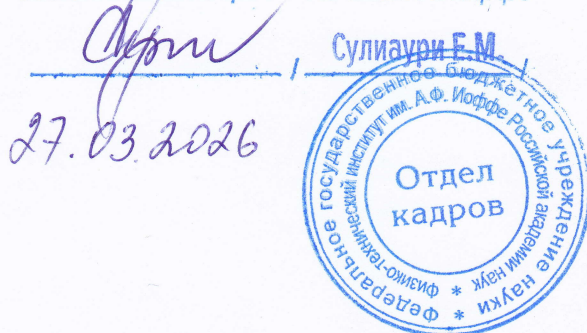 / Сулиаури Е.М. /
27.03.2026
Федеральное государственное бюджетное учреждение науки *
Физико-технический институт им. А.Ф. Иоффе Российской академии наук *
Отдел
кадров